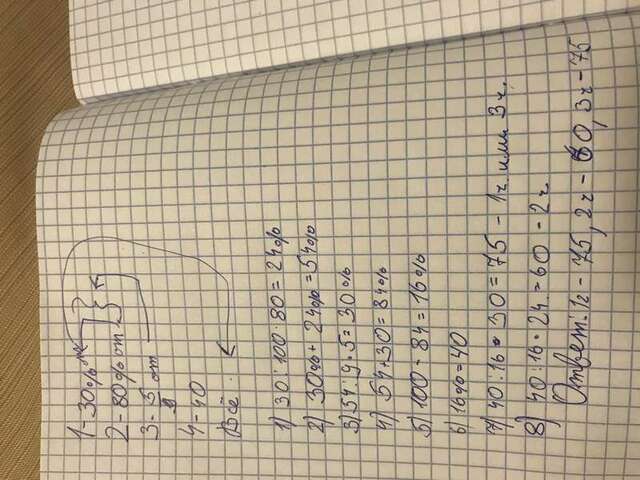 1 - 30%
2 - 80% от
3 - 5/9 от
4 - 40
Всё:
1) 30:100·80=24%
2) 30%+24%=54%
3) 54:9·5=30%
4) 54+30=84%
5) 100-84=16%
6) 16%=40
7) 40:16·30=75 - 1ч. или 3ч.
8) 40:16·24=60 - 2ч
Ответ: 1ч - 75, 2ч - 60, 3ч - 75